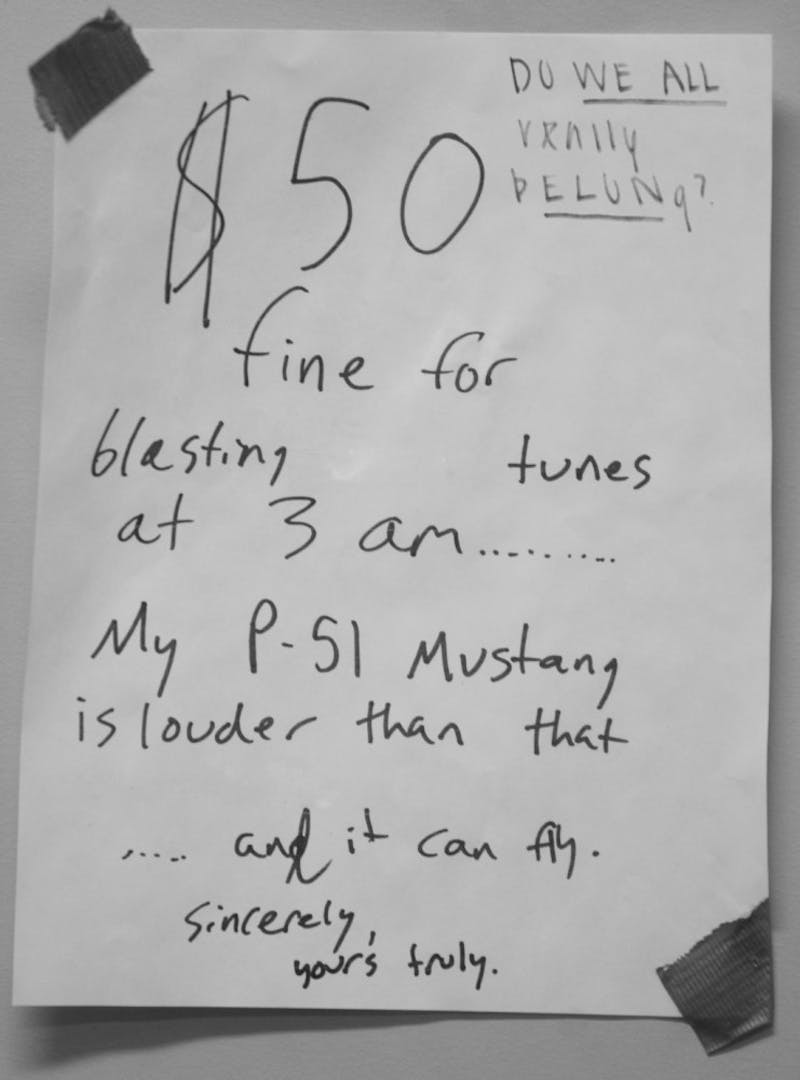 $50
DO WE ALL
really
bELONg?
fine for
blasting tunes
at 3 am.........
My P-51 Mustang
is louder than that
..... and it can fly.
sincerely,
yours truly.